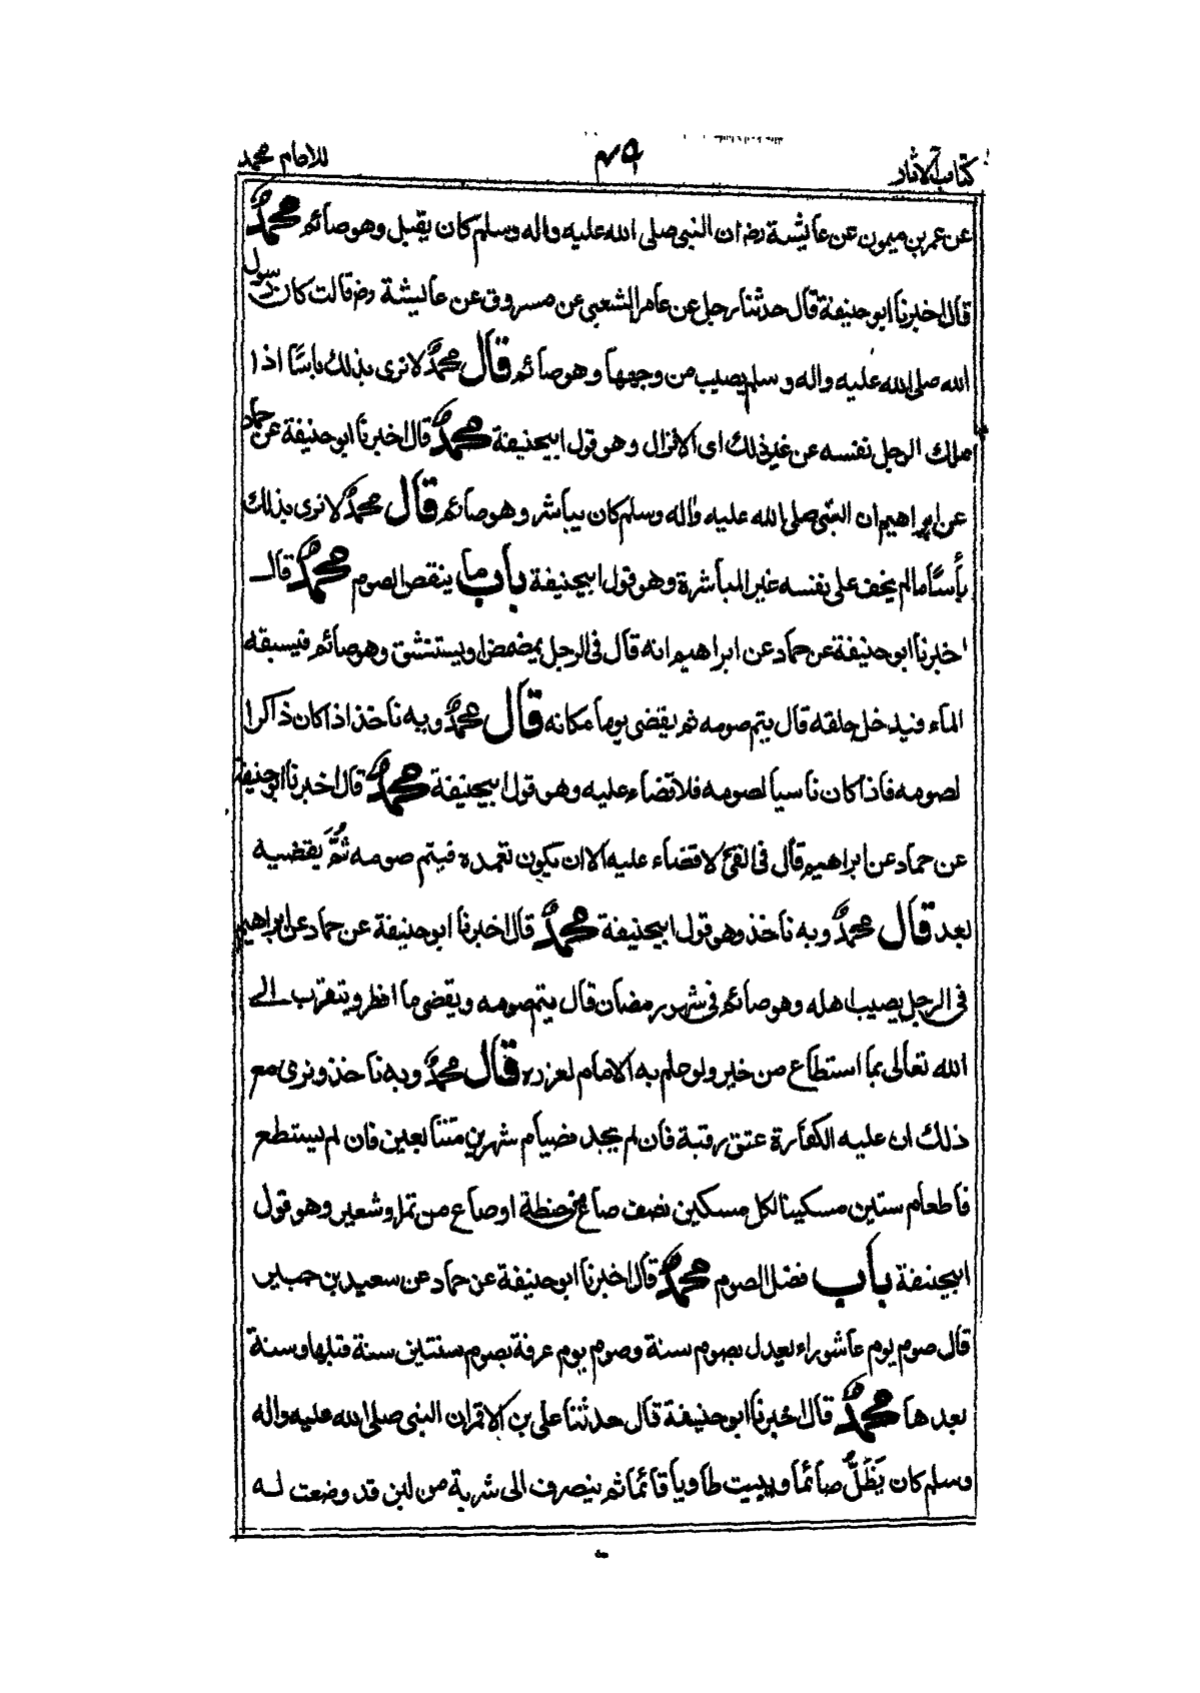 كتاب الاثار ۴۹ للامام محمد
عن عمر بن ميمون عن عايشة رض ان النبى صلى الله عليه واله وسلم كان يقبل وهو صائم محمدٌ
قال اخبرنا ابو حنيفة قال حدثنا رجل عن عامر الشعبى عن مسروق عن عايشة رض قالت كان رسول
الله صلى الله عليه واله وسلم يصيب من وجهها وهو صائم قال محمدٌ لا نرى بذلك باسًا اذا
املك الرجل نفسه عن غير ذلك اى الانزال وهو قول ابيحنيفة محمدٌ قال اخبرنا ابو حنيفة عن حماد
عن ابراهيم ان النبى صلى الله عليه واله وسلم كان يباشر وهو صائم قال محمدٌ لا نرى بذلك
بأسًا مالم يخف على نفسه غير المباشرة وهو قول ابيحنيفة باب ما ينقض الصوم محمدٌ قال
اخبرنا ابو حنيفة عن حماد عن ابراهيم انه قال فى الرجل يمضمض او يستنشق وهو صائم فيسبقه
الماء فيدخل حلقه قال يتم صومه ثم يقضى يوما مكانه قال محمدٌ وبه ناخذ اذا كان ذاكرا
لصومه فاذا كان ناسيا لصومه فلا قضاء عليه وهو قول ابيحنيفة محمدٌ قال اخبرنا ابو حنيفة
عن حماد عن ابراهيم قال فى القئ لا قضاء عليه الا ان يكون تعمده فيتم صومه ثُمَّ يقضيه
بعد قال محمدٌ وبه ناخذ وهو قول ابيحنيفة محمدٌ قال اخبرنا ابو حنيفة عن حماد عن ابراهيم
فى الرجل يصيب اهله وهو صائم فى شهر رمضان قال يتم صومه ويقضى ما افطر ويتقرب الى
الله تعالى بما استطاع من خير ولو علم به الامام لعزره قال محمدٌ وبه ناخذ ونرى مع
ذلك ان عليه الكفارة عتق رقبة فان لم يجد فصيام شهرين متتابعين فان لم يستطع
فاطعام ستين مسكينا لكل مسكين نصف صاع من حنطة او صاع من تمر او شعير وهو قول
ابيحنيفة باب فضل الصوم محمدٌ قال اخبرنا ابو حنيفة عن حماد عن سعيد بن جبير
قال صوم يوم عاشوراء يعدل بصوم سنة وصوم يوم عرفة بصوم سنتين سنة قبلها وسنة
بعدها محمدٌ قال اخبرنا ابو حنيفة قال حدثنا على بن الاقمر ان النبى صلى الله عليه واله
وسلم كان يَظَلُّ صائما ويبيت طاويا قائما ثم ينصرف الى شربة من لبن قد وضعت له